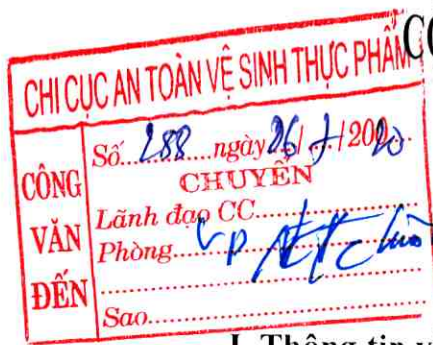 CHI CỤC AN TOÀN VỆ SINH THỰC PHẨM
CÔNG VĂN ĐẾN
Số...288...ngày 26/7/2020...
CHUYỂN
Lãnh đạo CC...............
Phòng...VP
Sao...............
I. Thông tin